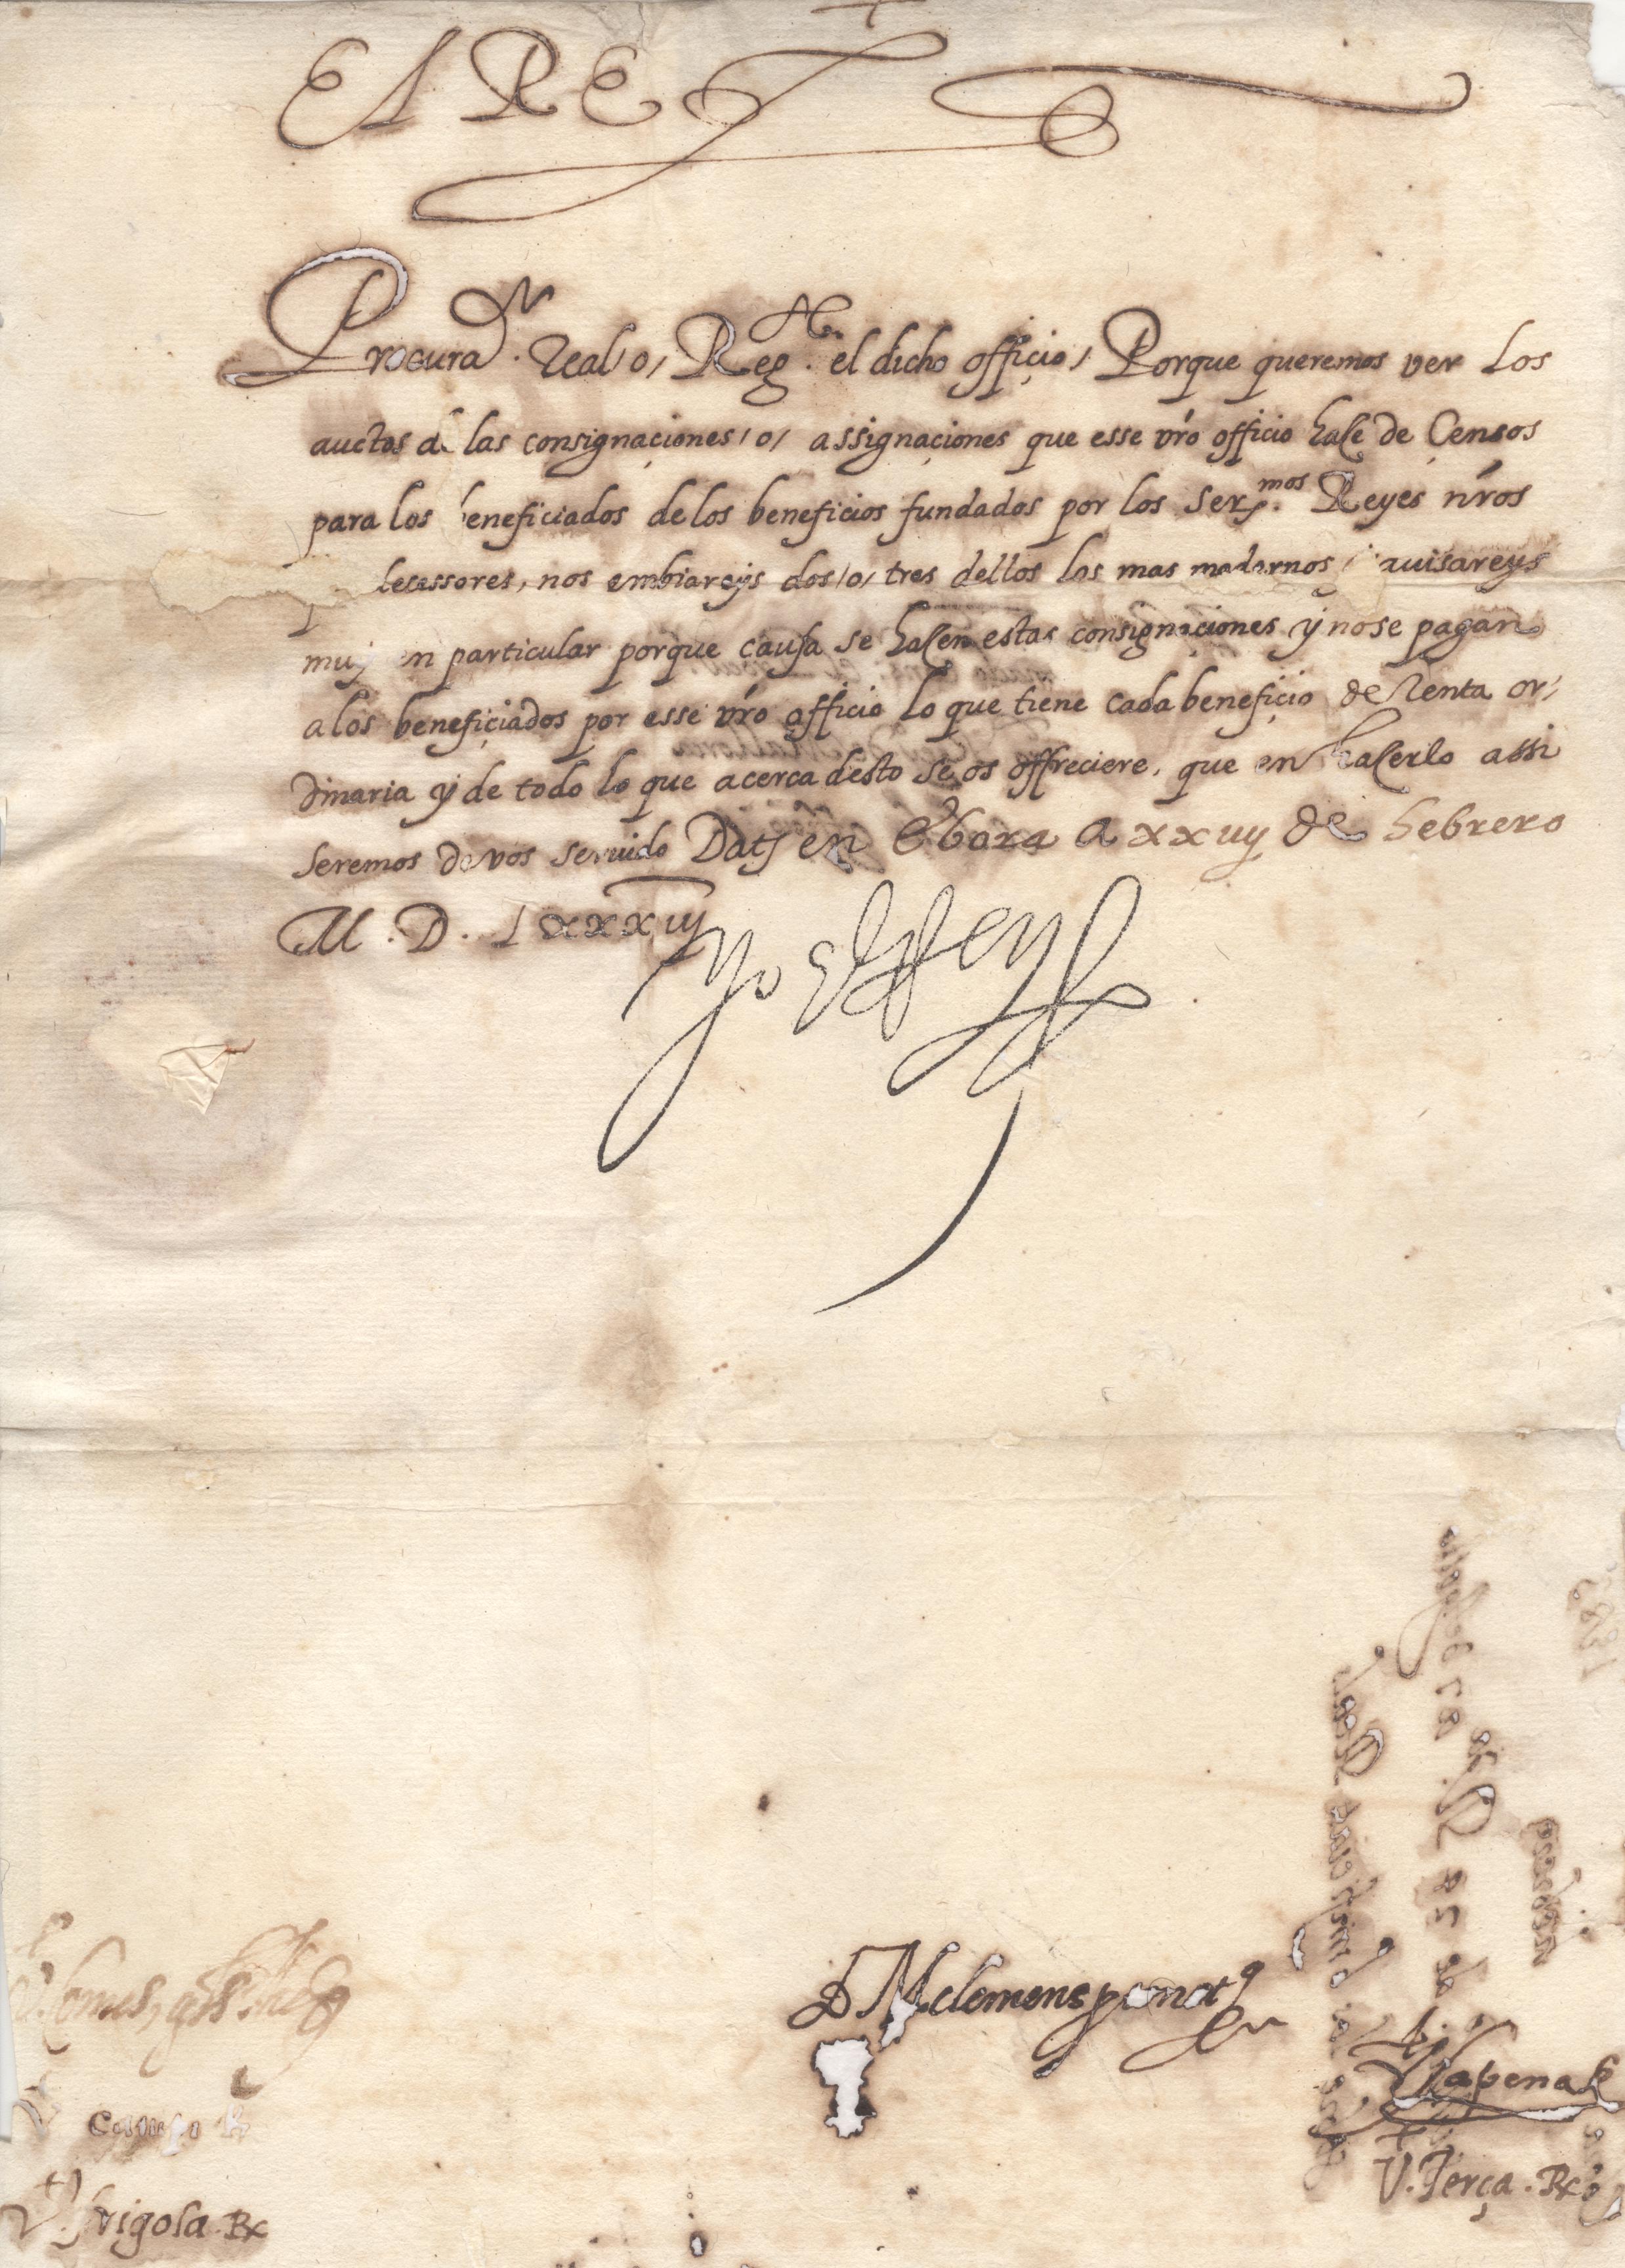 El REY
Procurador. Real /o/ Reg.te el dicho officio / Porque queremos ver Los
auctos de las consignaçiones /o/ assignaçiones que esse vro officio haze de Çensos
para los beneficiados de los beneficios fundados por los Ser.mos Reyes nros
decessores, nos embiareys dos /o/ tres dellos los mas modernos / auisareys
muy en particular porque causa se hazen estas consignaçiones y no se pagan
a los benefiçiados por esse vro officio lo que tiene cada benefiçio de Renta or/
dinaria y de todo lo que acerca desto se os offreciere, que en hazerlo assi
Seremos de vos seruido Dat en Ebora a xxuy de hebrero
M.D.Lxxxuy
Yo El Rey
D M clemens
Comes
Campi R
V. frigola Rx
Sapena R
V. Terça. Rx